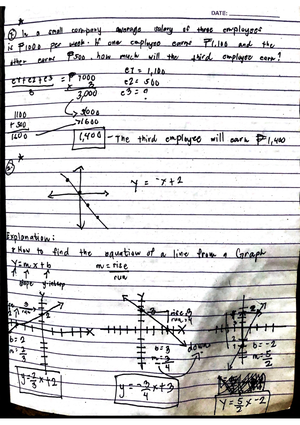 DATE:
① In a small company average salary of three employees
is ₱1000 per week. If one employee earns ₱1,100 and the
other earns ₱500 how much will the third employee earn?
e1+e2+e3 = ₱1000 e1 = 1,100
3 3 e2 = 500
3,000 e3 = ?
1100 3000
+500 -1600
1600 1,400 - The third employee will earn ₱1,400
②
y = -x+2
Explanation:
* How to find the equation of a line from a Graph
y=mx+b m=rise
run
slope y-intercep
rise 3
run 4
down
b=2 b=3 b=-2
m=2/3 m=-3/4 m=5/2
y=2/3x+2 y=-3/4x+3 y=5/2x-2